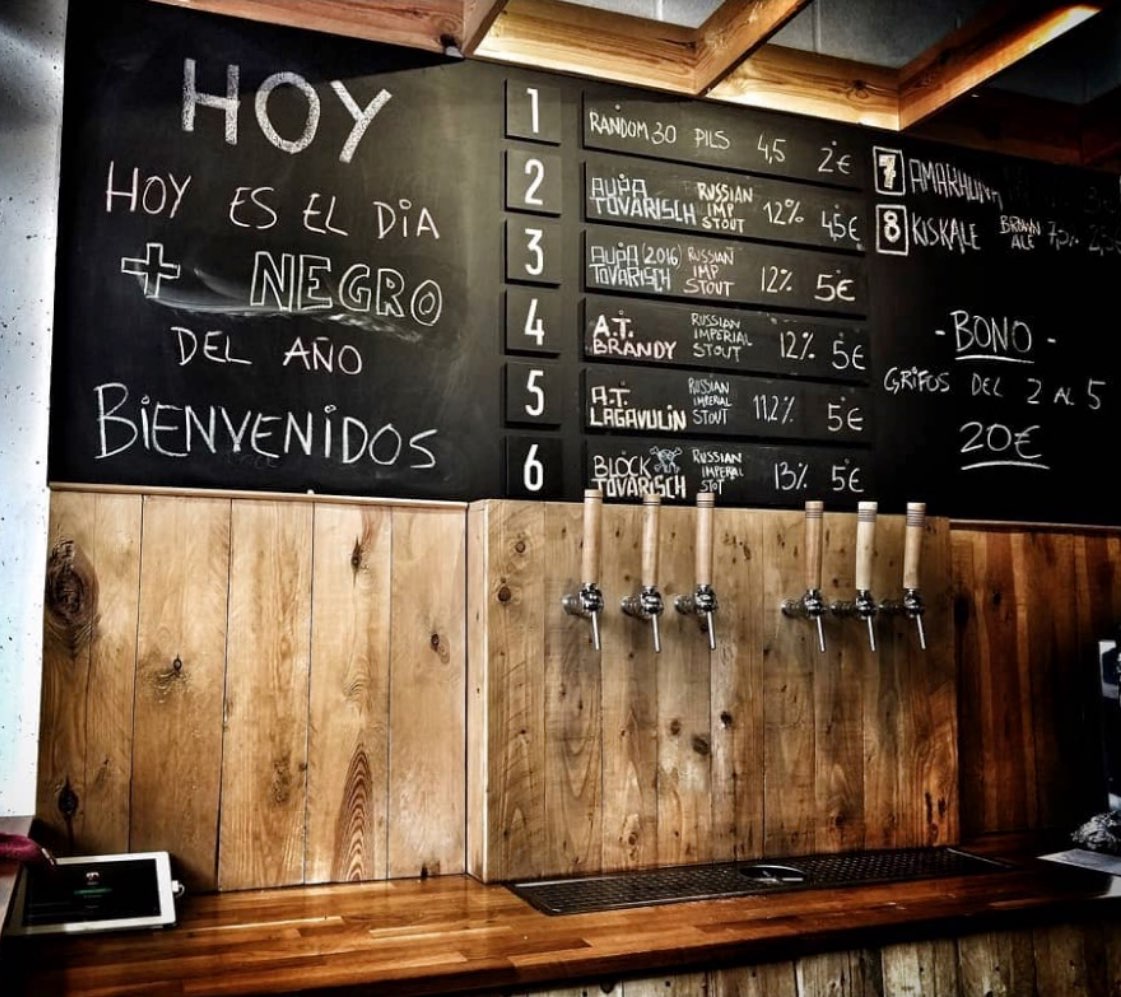 HOY
HOY ES EL DiA
+ NEGRO
DEL AÑO
BiENVENiDOS
1 RANDOM 30 PiLS 4,5 2€
2 AUPA TOVARISCH RUSSIAN IMP STOUT 12% 4,5€
3 AUPA (2016) TOVARISCH RUSSIAN IMP STOUT 12% 5€
4 A.T. BRANDY RUSSIAN IMPERIAL STOUT 12% 5€
5 A.T. LAGAVULiN RUSSIAN IMPERIAL STOUT 11,2% 5€
6 BLOCK TOVARISCH RUSSIAN IMPERIAL STOT 13% 5€
7
8 KISKALE BROWN ALE 7,5%
- BONO -
GRiFOS DEL 2 AL 5
20€